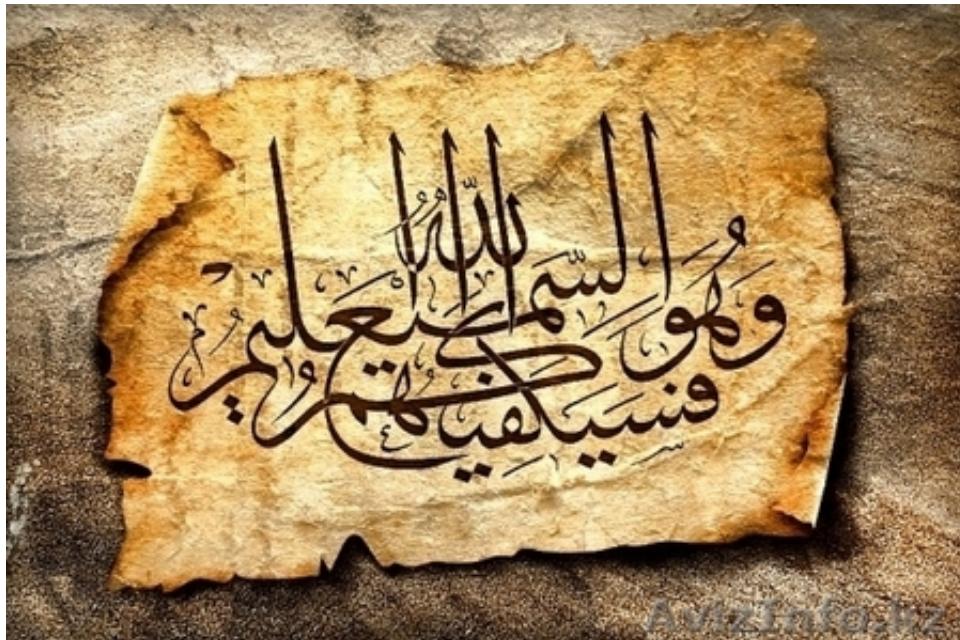 فَسَيَكْفِيكَهُمُ اللَّهُ
وَهُوَ السَّمِيعُ الْعَلِيمُ
AvizInfo.kz